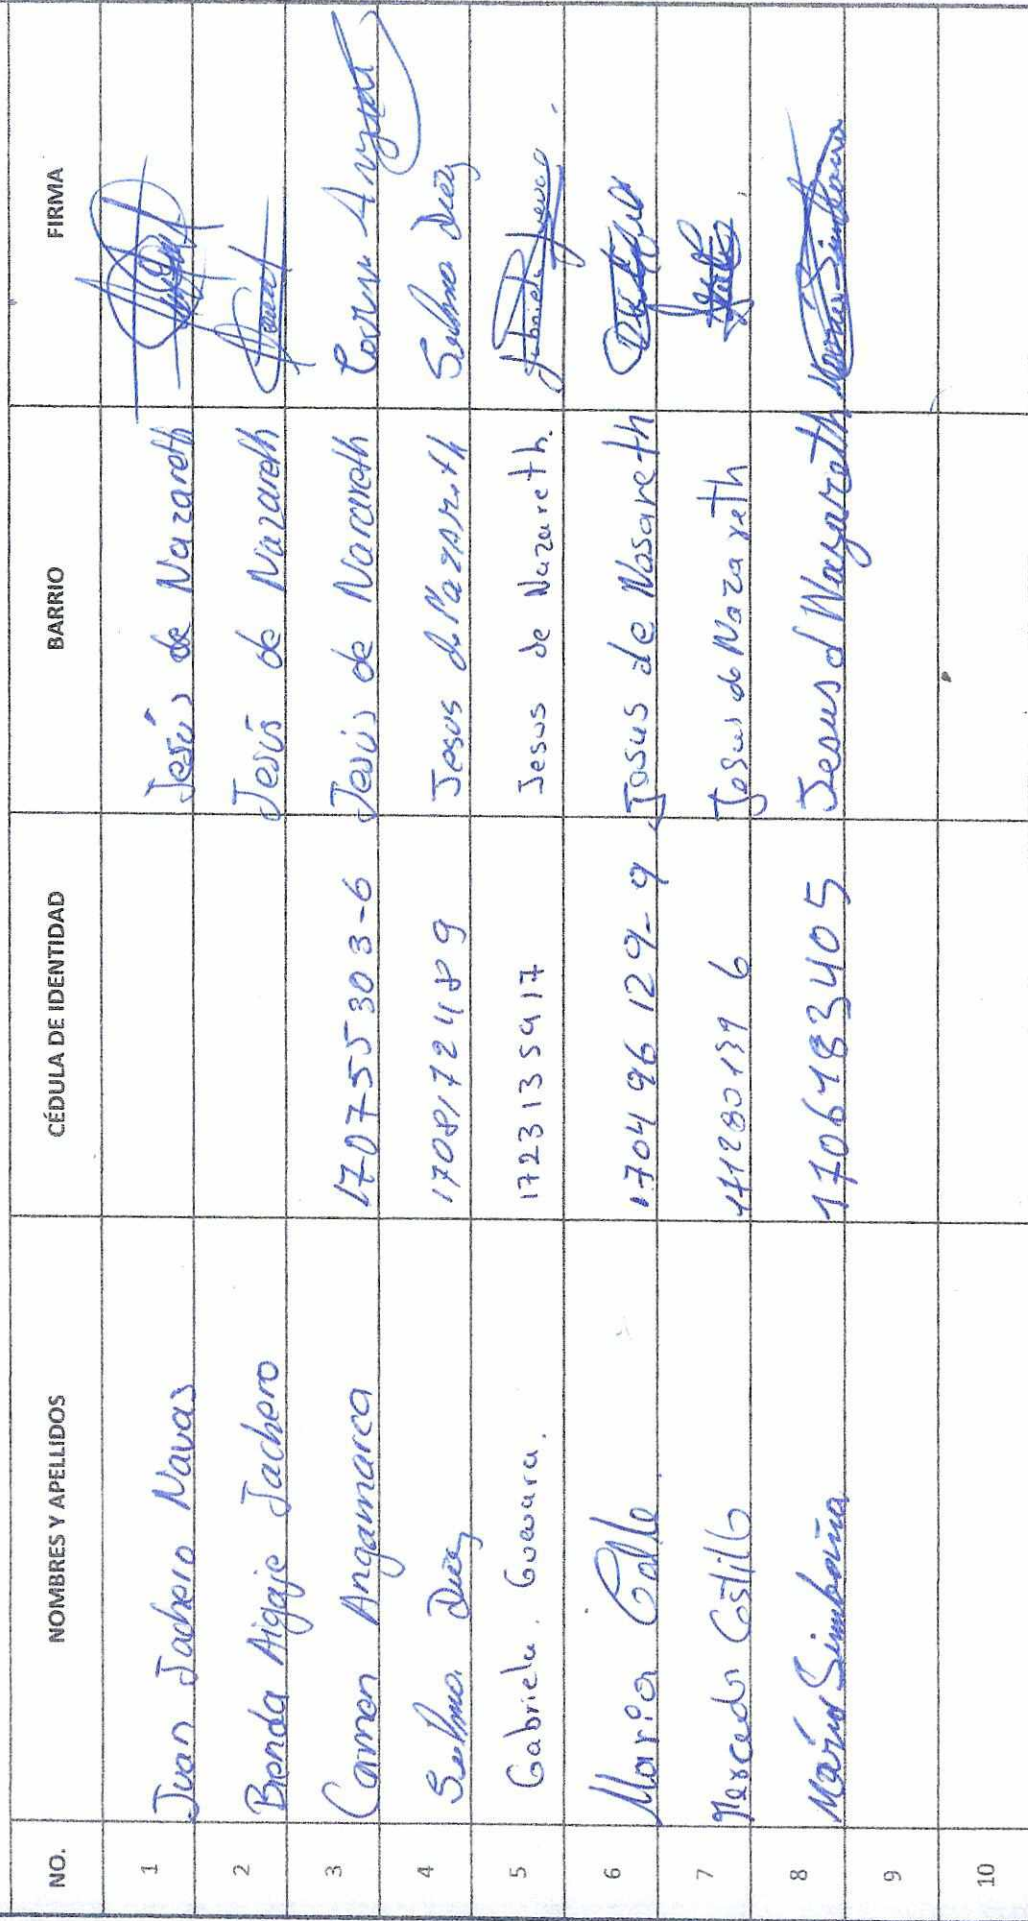 NO. NOMBRES Y APELLIDOS CÉDULA DE IDENTIDAD BARRIO FIRMA
1 Juan Jachero Navas Jesús de Nazareth
2 Benda Aigaje Jachero Jesús de Nazareth
3 Carmen Angamarca 170755303-6 Jesús de Nazareth
4 1708172489 Jesus de Nazareth
5 Gabriela Guevara. 1723135917 Jesus de Nazareth.
6 Maria Calle 170496129-9 Jesus de Nasareth
7 Mercedes Costillo Jesus de Nazareth
8 María Simbaña Jesus d Nazareth
9
10